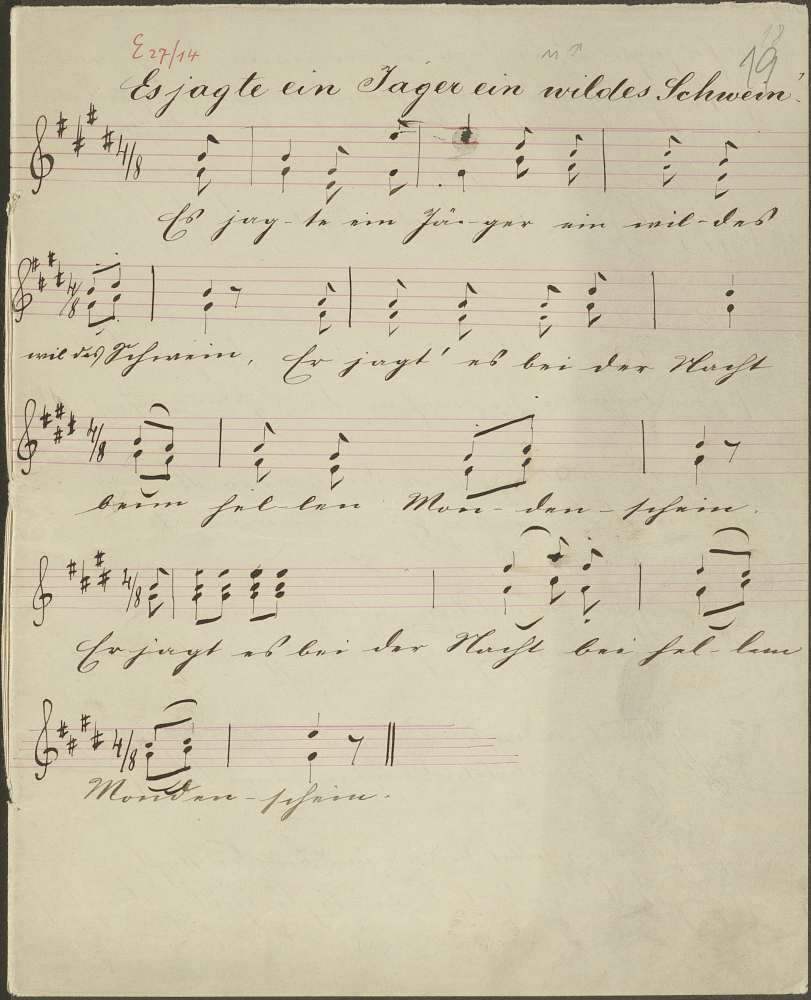 E 27/14
19
Es jagte ein Jäger ein wildes Schwein.
4/8
Es jag-te ein Jä--ger ein wil-des
4/8
wil des Schwein, Er jagt' es bei der Nacht
4/8
beim hel-len Mon-den-schein.
4/8
Er jagt es bei der Nacht bei hel-lem
4/8
Monden-schein.